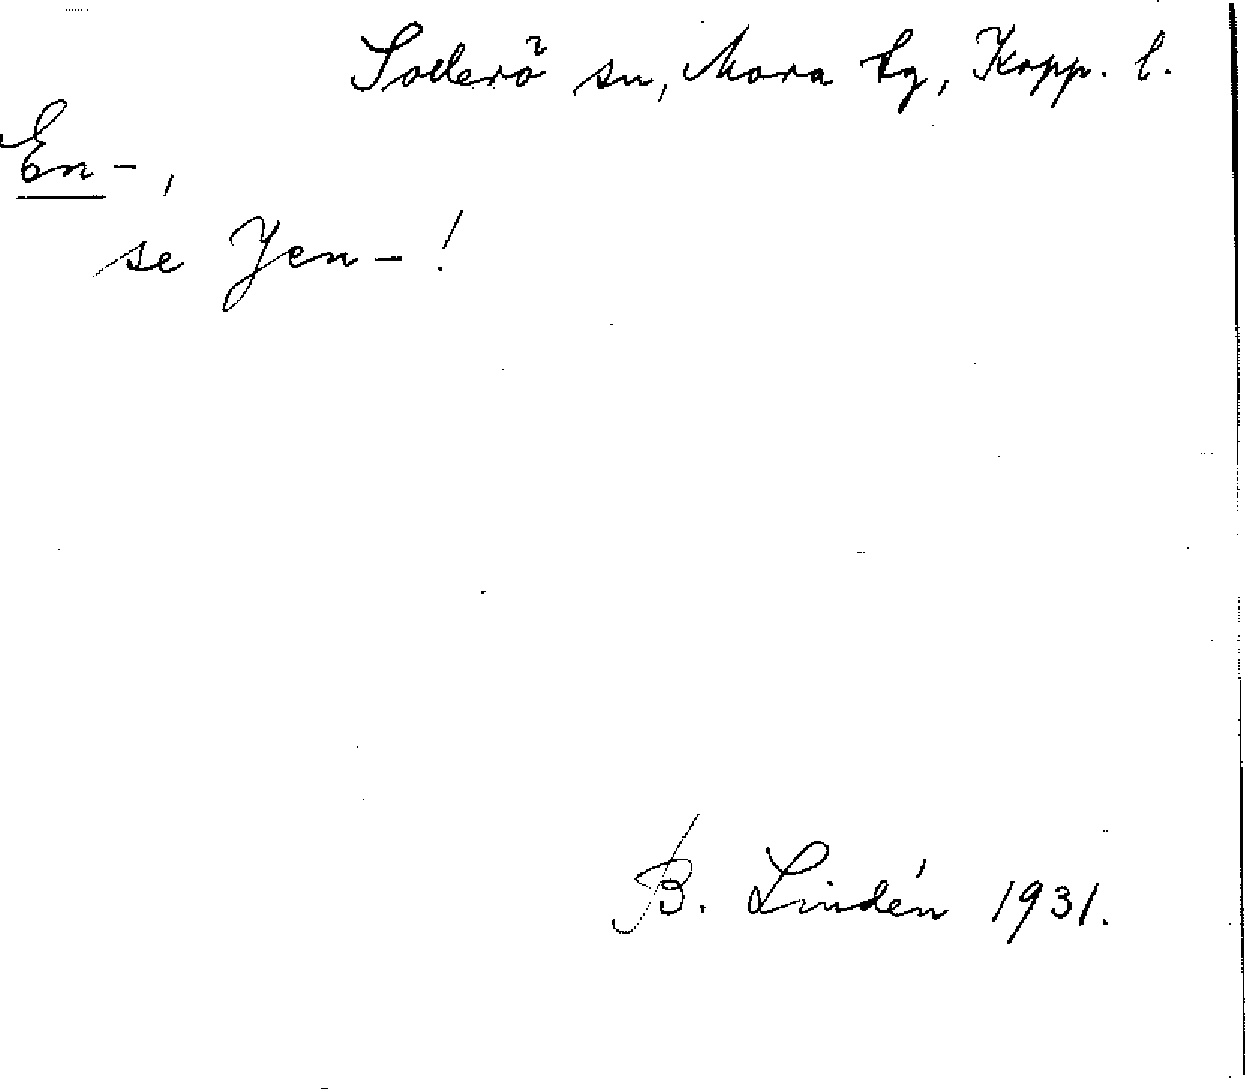 Sollerö sn, Mora tg, Kopp. l.
En-,
se Jen-!
B. Lindén 1931.